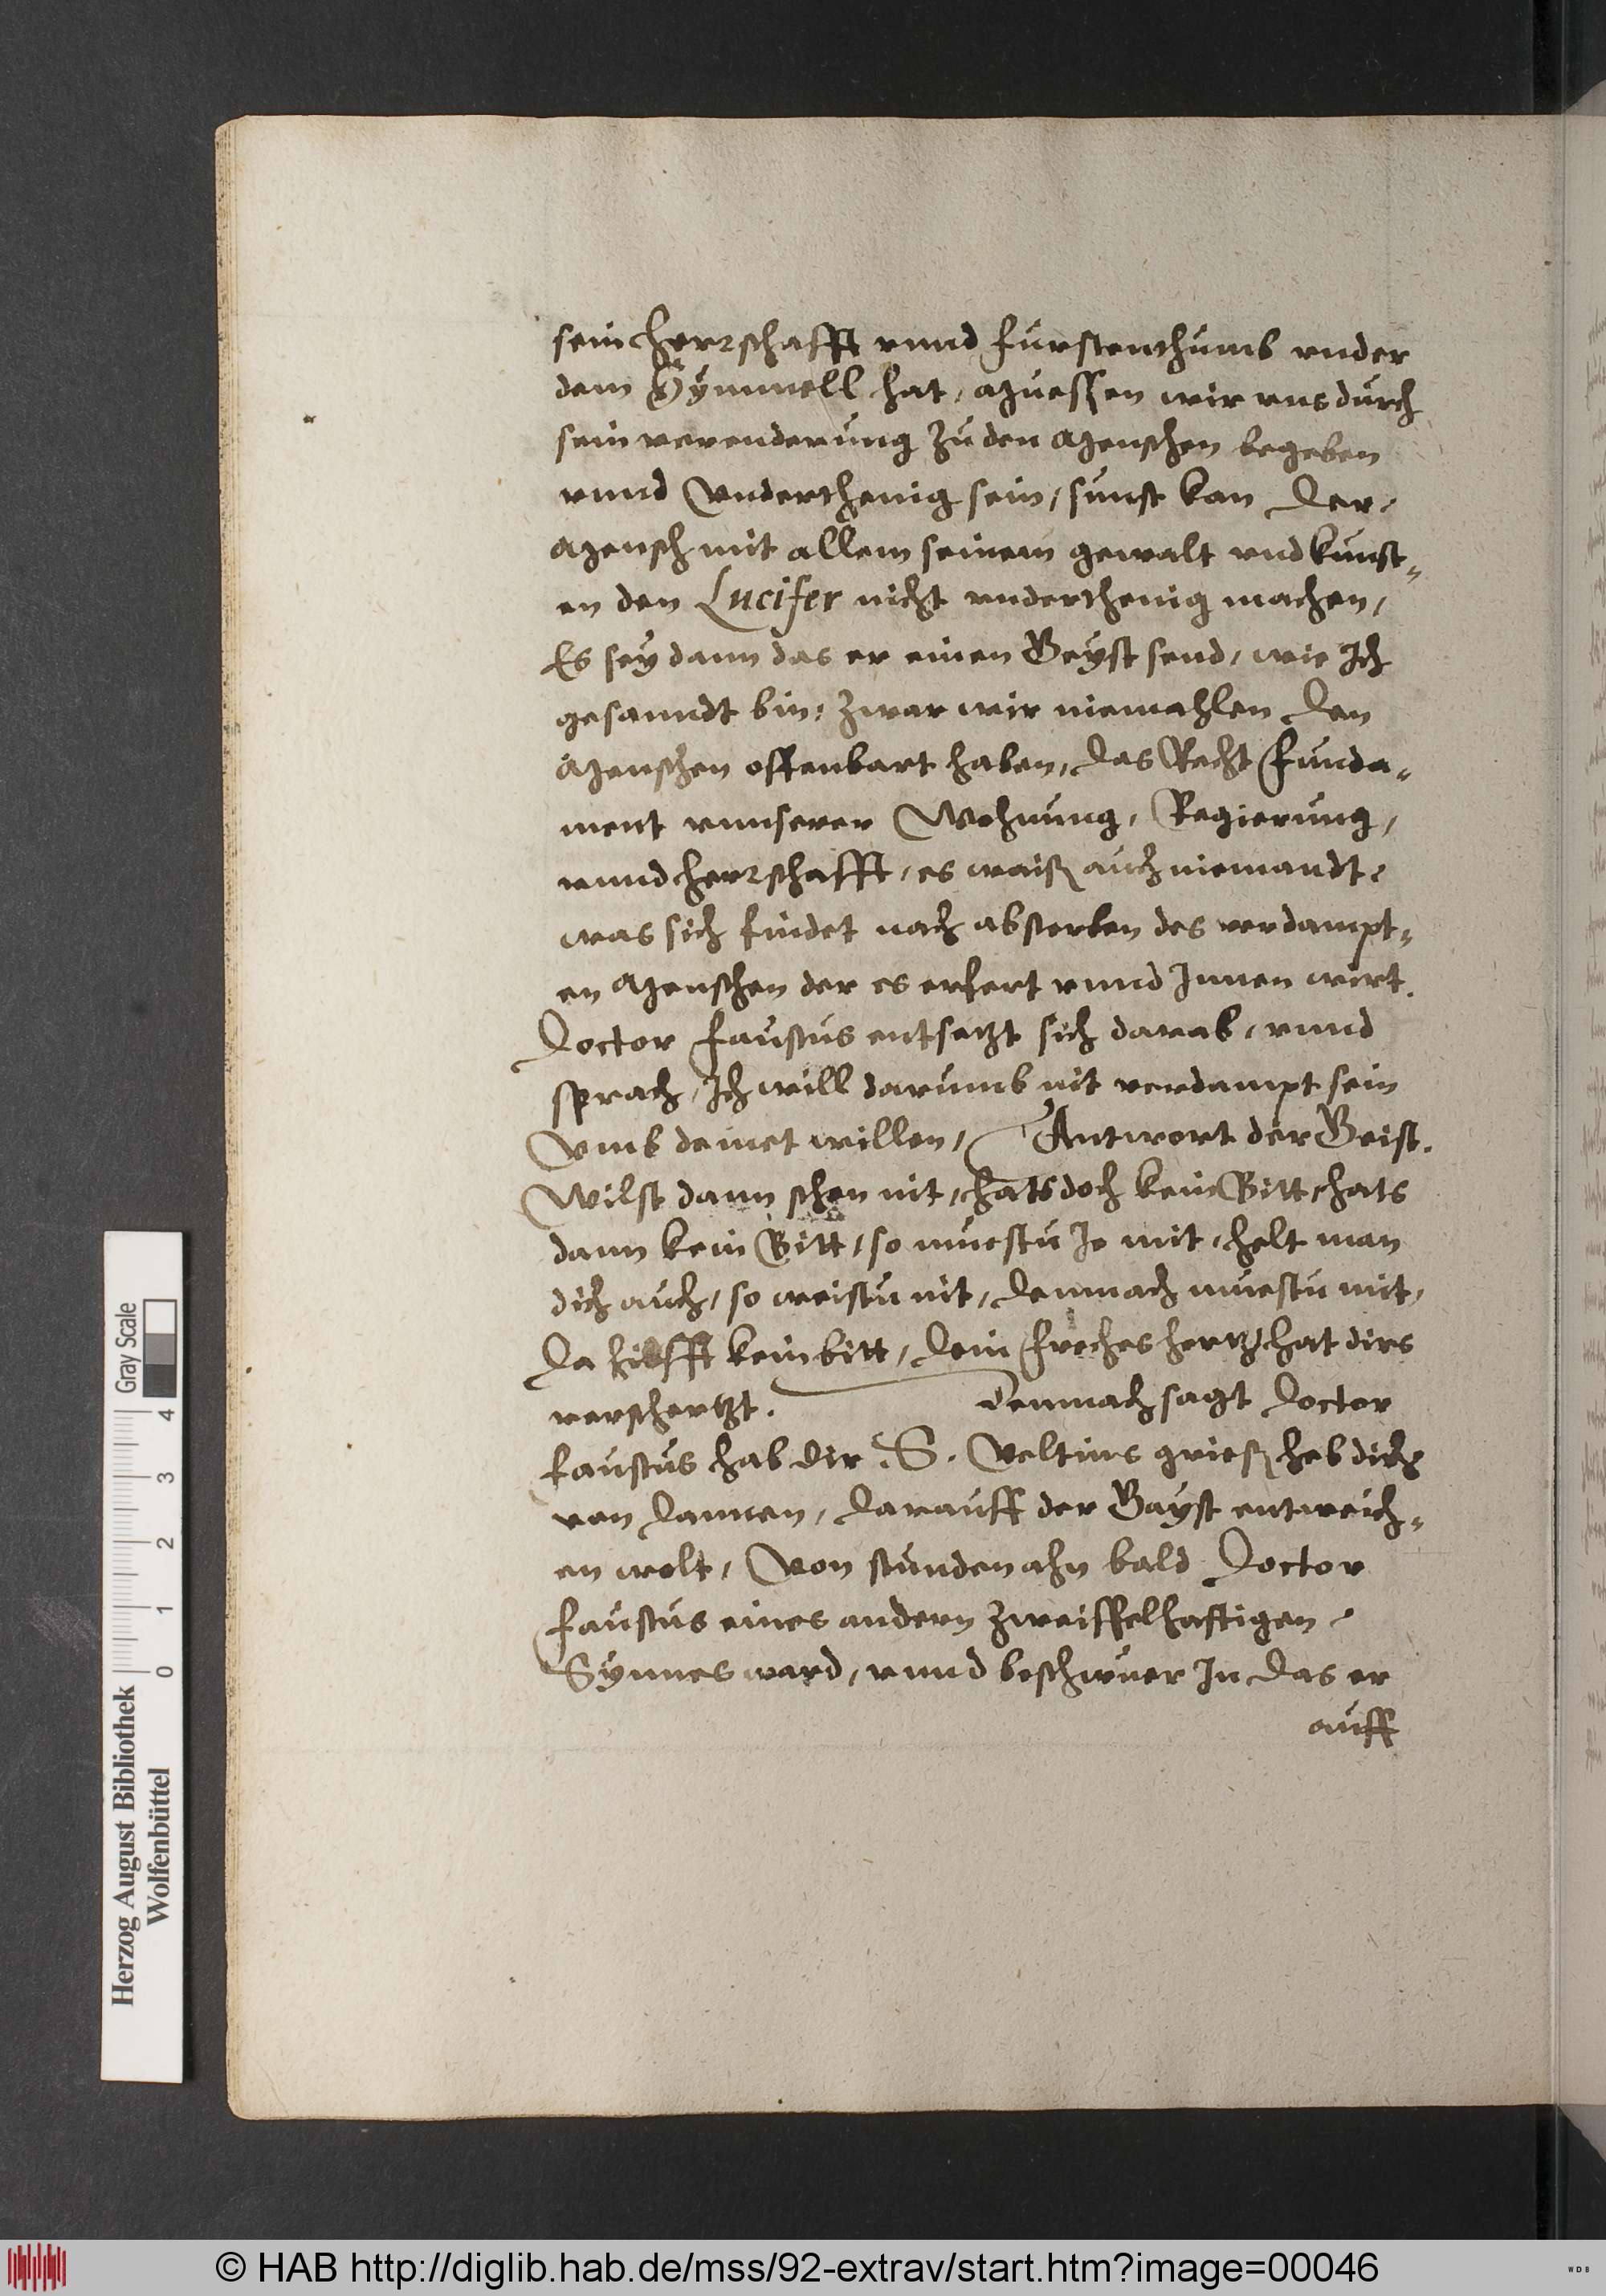 sein Herrschafft vnnd furstenthumb vnder
dem Hÿmmell hat, Muessen wir vns durch
sein verenderung zu den Menschen begeben
vnnd Vnderthenig sein, sunst kan Der
Mensch mit allem seinem gewalt vnd kunst-
en den Lucifer nicht vnderthenig machen,
Es seÿ dann das er einen Geÿst send, wie Ich
gesanndt bin: Zwar wir niemahlen den
Menschen offenbart haben, das Recht funda-
ment vnnserer Wohnung, Regierung,
vnnd herrschafft, es waiß auch niemandt
was sich findet nach absterben des verdampt-
en Menschen der es erfert vnnd Innen wirt.
Doctor Faustus entsetzt sich darab, vnnd
sprach, Ich will darumb nit verdampt sein
Vmb deinet willen, Antwort der Geist.
Wilst dann schon nit, hats doch kein Bitt, hats
dann kein Bitt, so muestu Je mit, helt man
dich auch, so weistu nit, Dennach muestu mit,
Da hilfft kein bitt, Dein freches hertz hat dirs
verschertzt. Dennach sagt Doctor
Faustus hab dir S. Veltins grieß heb dich
von dannen, Darauff der Gayst entweich-
en wolt, Von stunden ahn bald Doctor
Faustus eines andern zweiffelhafftigen
Sÿnnes ward, vnnd beschwuer In das er
auff
Herzog August Bibliothek
Wolfenbüttel
0 1 2 3 4
Gray Scale
© HAB http://diglib.hab.de/mss/92-extrav/start.htm?image=00046
WDB